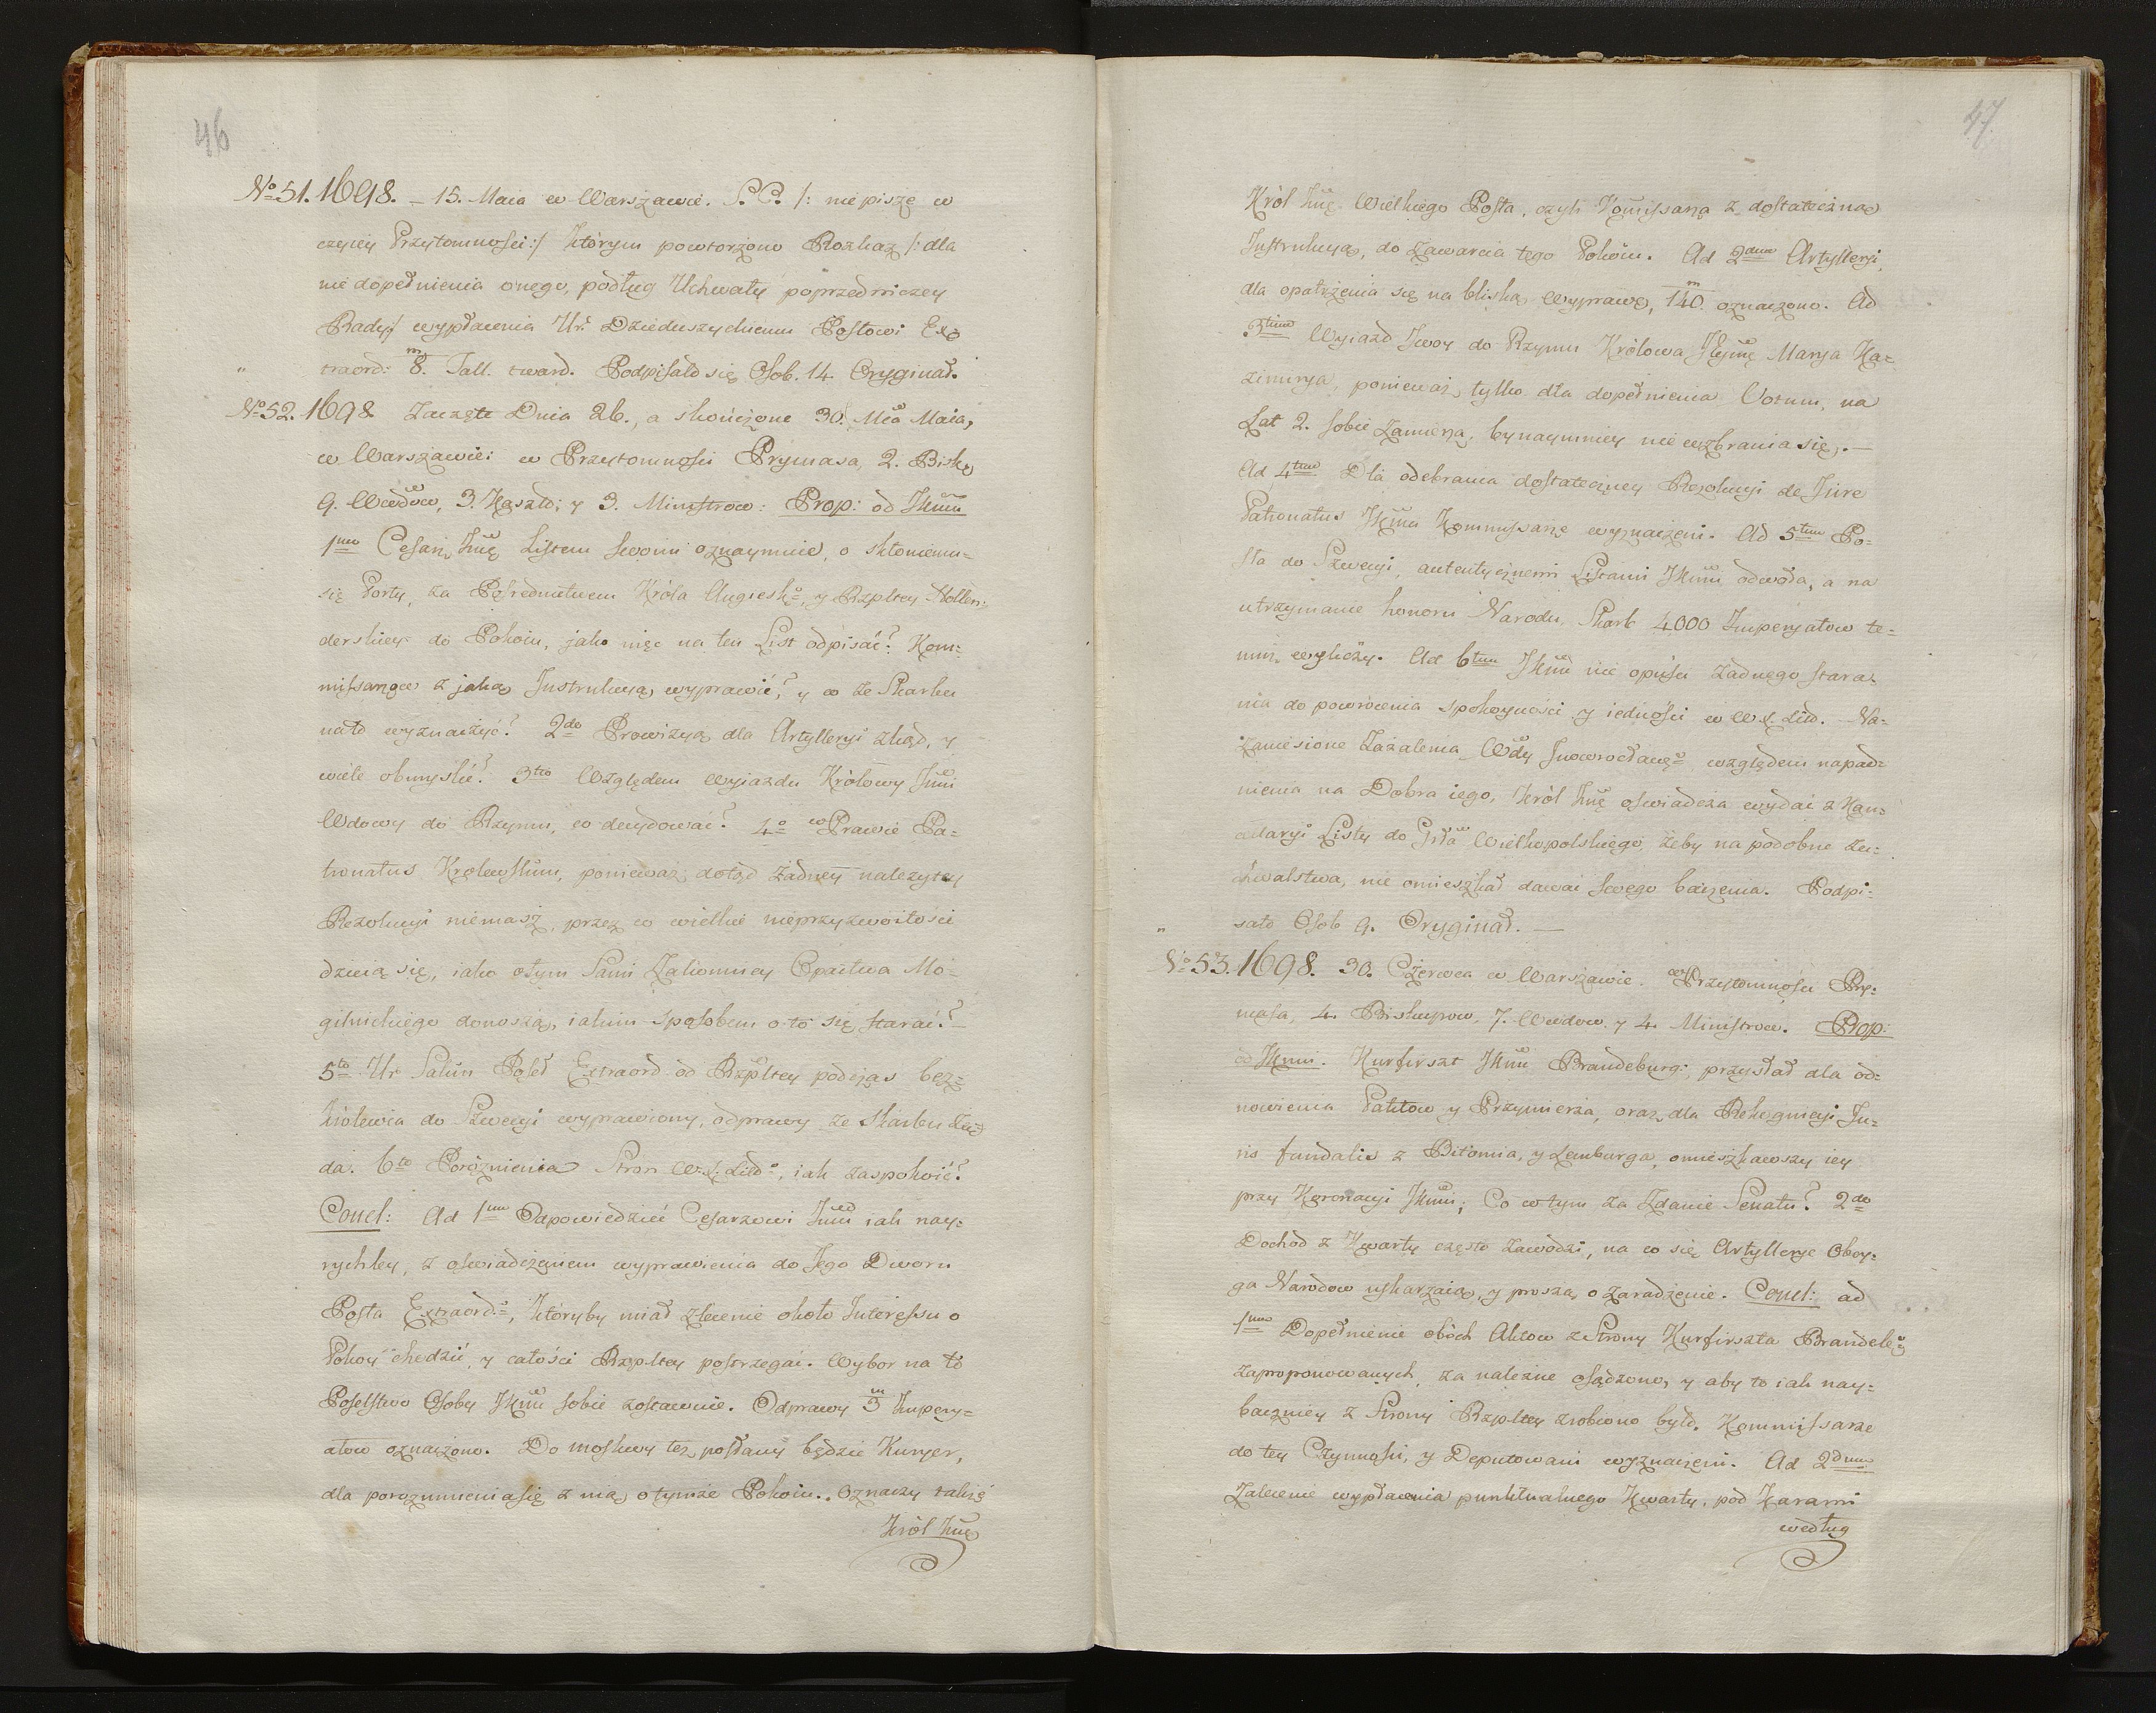 46
№ 51. 1698. – 15. Maia w Warszawie. S. C. /: nie piszę w
czyiey Przytomności :/ którym powtorzono Rozkaz /: dla
nie dopełnienia onego, podług Uchwały poprzedniczey
Rady :/ wypłacenia Ur. Dzieduszyckiemu Posłowi Ex=
traord: 8. Tall. tward. Podpisało się Osob. 14. Oryginał.
№ 52. 1698 Zaczęte Dnia 26., a skończone 30. Mca Maia,
w Warszawie: w Przytomności Prymasa, 2. Bisk.
9. Wdow, 3. Kasztl: y 3. Ministrow: Prop: od JKmci
1mo Cesarz Jmć Listem swoim oznaymuie, o skłonieniu=
się Porty, za Pośrednictwem Króla Angielsk: y Rzpltey Hollen=
derskiey do Pokoiu, jako więc na ten List odpisać? Kom=
missarzow z jaką Instrukcyą wyprawić? y co ze Skarbu
nato wyznaczyć? 2do Prowizyą dla Artylleryi zkąd, y
wiele obmyslić? 3tio Względem wyiazdu Królowy Jmci
Wdowy do Rzymu, co decydować? 4o w Prawie Pa=
tronatus Królewskim, ponieważ dotąd żadney należytey
Rezolucyi niemasz, przez co wielkie nieprzyzwoitości
dzieią się, iako o tym Sami Zakonnicy Opactwa Mo=
gilnickiego donoszą, iakim sposobem o to się starać?
5to Ur. Poseł Extraord: od Rzpltey podczas bez=
królewia do Szwecyi wyprawiony, odprawy ze Skarbu żą=
da. 6to Poróżnienia Stron W. X. Litt: iak zaspokoić?
Concl: Ad 1mum Odpowiedzieć Cesarzowi Jmci iak nay=
rychley, z oświadczeniem wyprawienia do Jego Dworu
Posła Extraord:, któryby miał zlecenie około Interessu o
Pokoy chodzić, y całości Rzpltey postrzegać. Wybor na to
Poselstwo Osoby JKmć sobie zostawuie. Odprawy 3 Impery=
ałow oznaczono. Do Moskwy też posłany będzie Kuryer,
dla porozumienia się z nią o tymże Pokoiu. Oznaczy także
Król Jmć
47.
Król Jmć Wielkiego Posła, czyli Kommissarza z dostateczną
Instrukcyą, do zawarcia tego Pokoiu. Ad 2dum Artylleryi,
dla opatrzenia się na bliską wyprawę, 140. oznaczono. Ad
3tium Wyiazd Swoy do Rzymu Królowa Jeymć Marya Ka=
zimirya, ponieważ tylko dla dopełnienia Votum, na
Lat 2. sobie zamierza, bynaymniey nie wzbrania się. –
Ad 4tum Dla odebrania dostateczney Rezolucyi de Jure
Patronatus JKmci Kommissarze wyznaczeni. Ad 5tum Po=
sła do Szwecyi, autentycznemi Listami JKmć odwoła, a na
utrzymanie honoru Narodu, Skarb 4000 Imperyałow te=
muż wyliczy. Ad 6tum JKmć nie opuści żadnego stara=
nia do powrócenia spokoyności y iedności w W. X. Litt. Na=
zaniesione zażalenia Wdy Inowrocławs: względem napad=
nienia na Dobra iego, Król Jmć oświadcza wydać z Kan=
cellaryi Listy do Grła Wielkopolskiego, żeby na podobne zu=
chwalstwa, nie omieszkał dawać swego baczenia. Podpi=
sało Osob 9. Oryginał. –
№ 53. 1698. 30. Czerwca w Warszawie. w Przytomności Pry=
masa, 4. Biskupow, 7. Wwdow. y 4. Ministrow. Prop:
od JKmci. Kurfirszt JKmć Brandeburg:, przysłał dla od=
nowienia Paktow y Przymierza, oraz dla Rekognicyi Ju=
ris fundalis z Bitomia, y Lemburga, omieszkawszy iey
przy Koronacyi JKmci; Co w tym za Zdanie Senatu? 2do
Dochod z Kwarty często zawodzi, na co się Artyllerye Oboy=
ga Narodow uskarzaią, y proszą o zaradzenie. Concl: ad
1mum Dopełnienie obóch Aktow z Strony Kurfirszta Brandeb:
zaproponowanych, za należne osądzono, y aby to iak nay=
baczniey z Strony Rzpltey zrobiono było. Kommissarze
do tey Czynności, y Deputowani wyznaczeni. Ad 2dum
Zalecenie wypłacenia punktualnego Kwarty, pod Karami
według